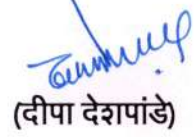 (दीपा देशपांडे)